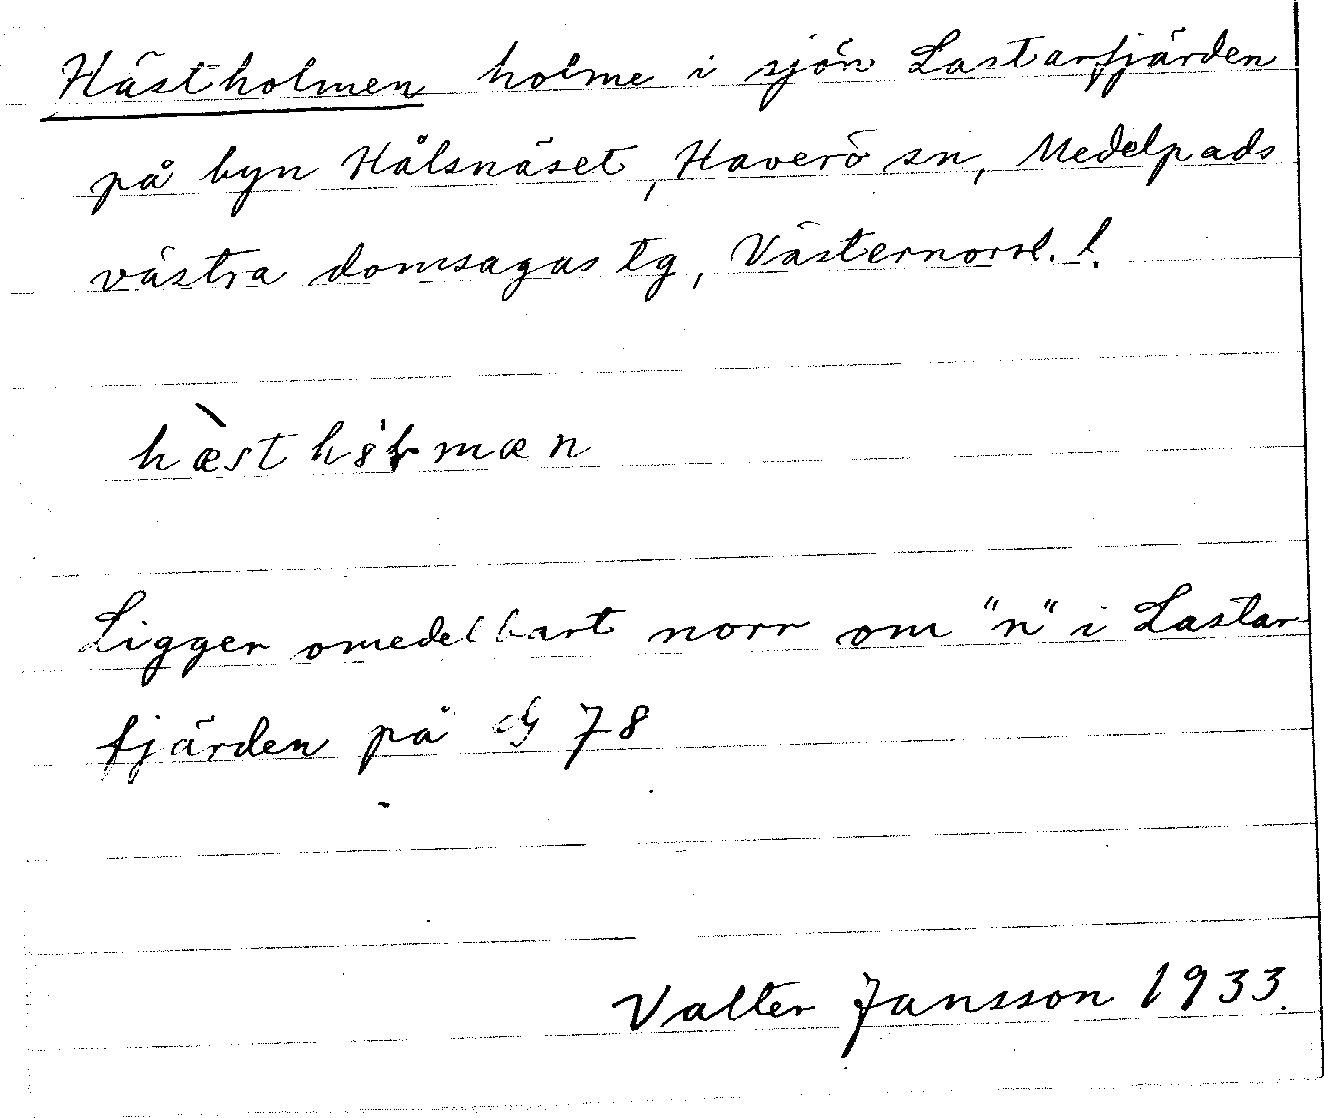 Hästholmen holme i sjön Lastarfjärden
på byn Hålsnäset, Haverö sn, Medelpads
västra domsagas tg, Västernorrl. l.
Ligger omedelbart norr om "n" i Lastar
fjärden på G 78
Valter Jansson 1933.